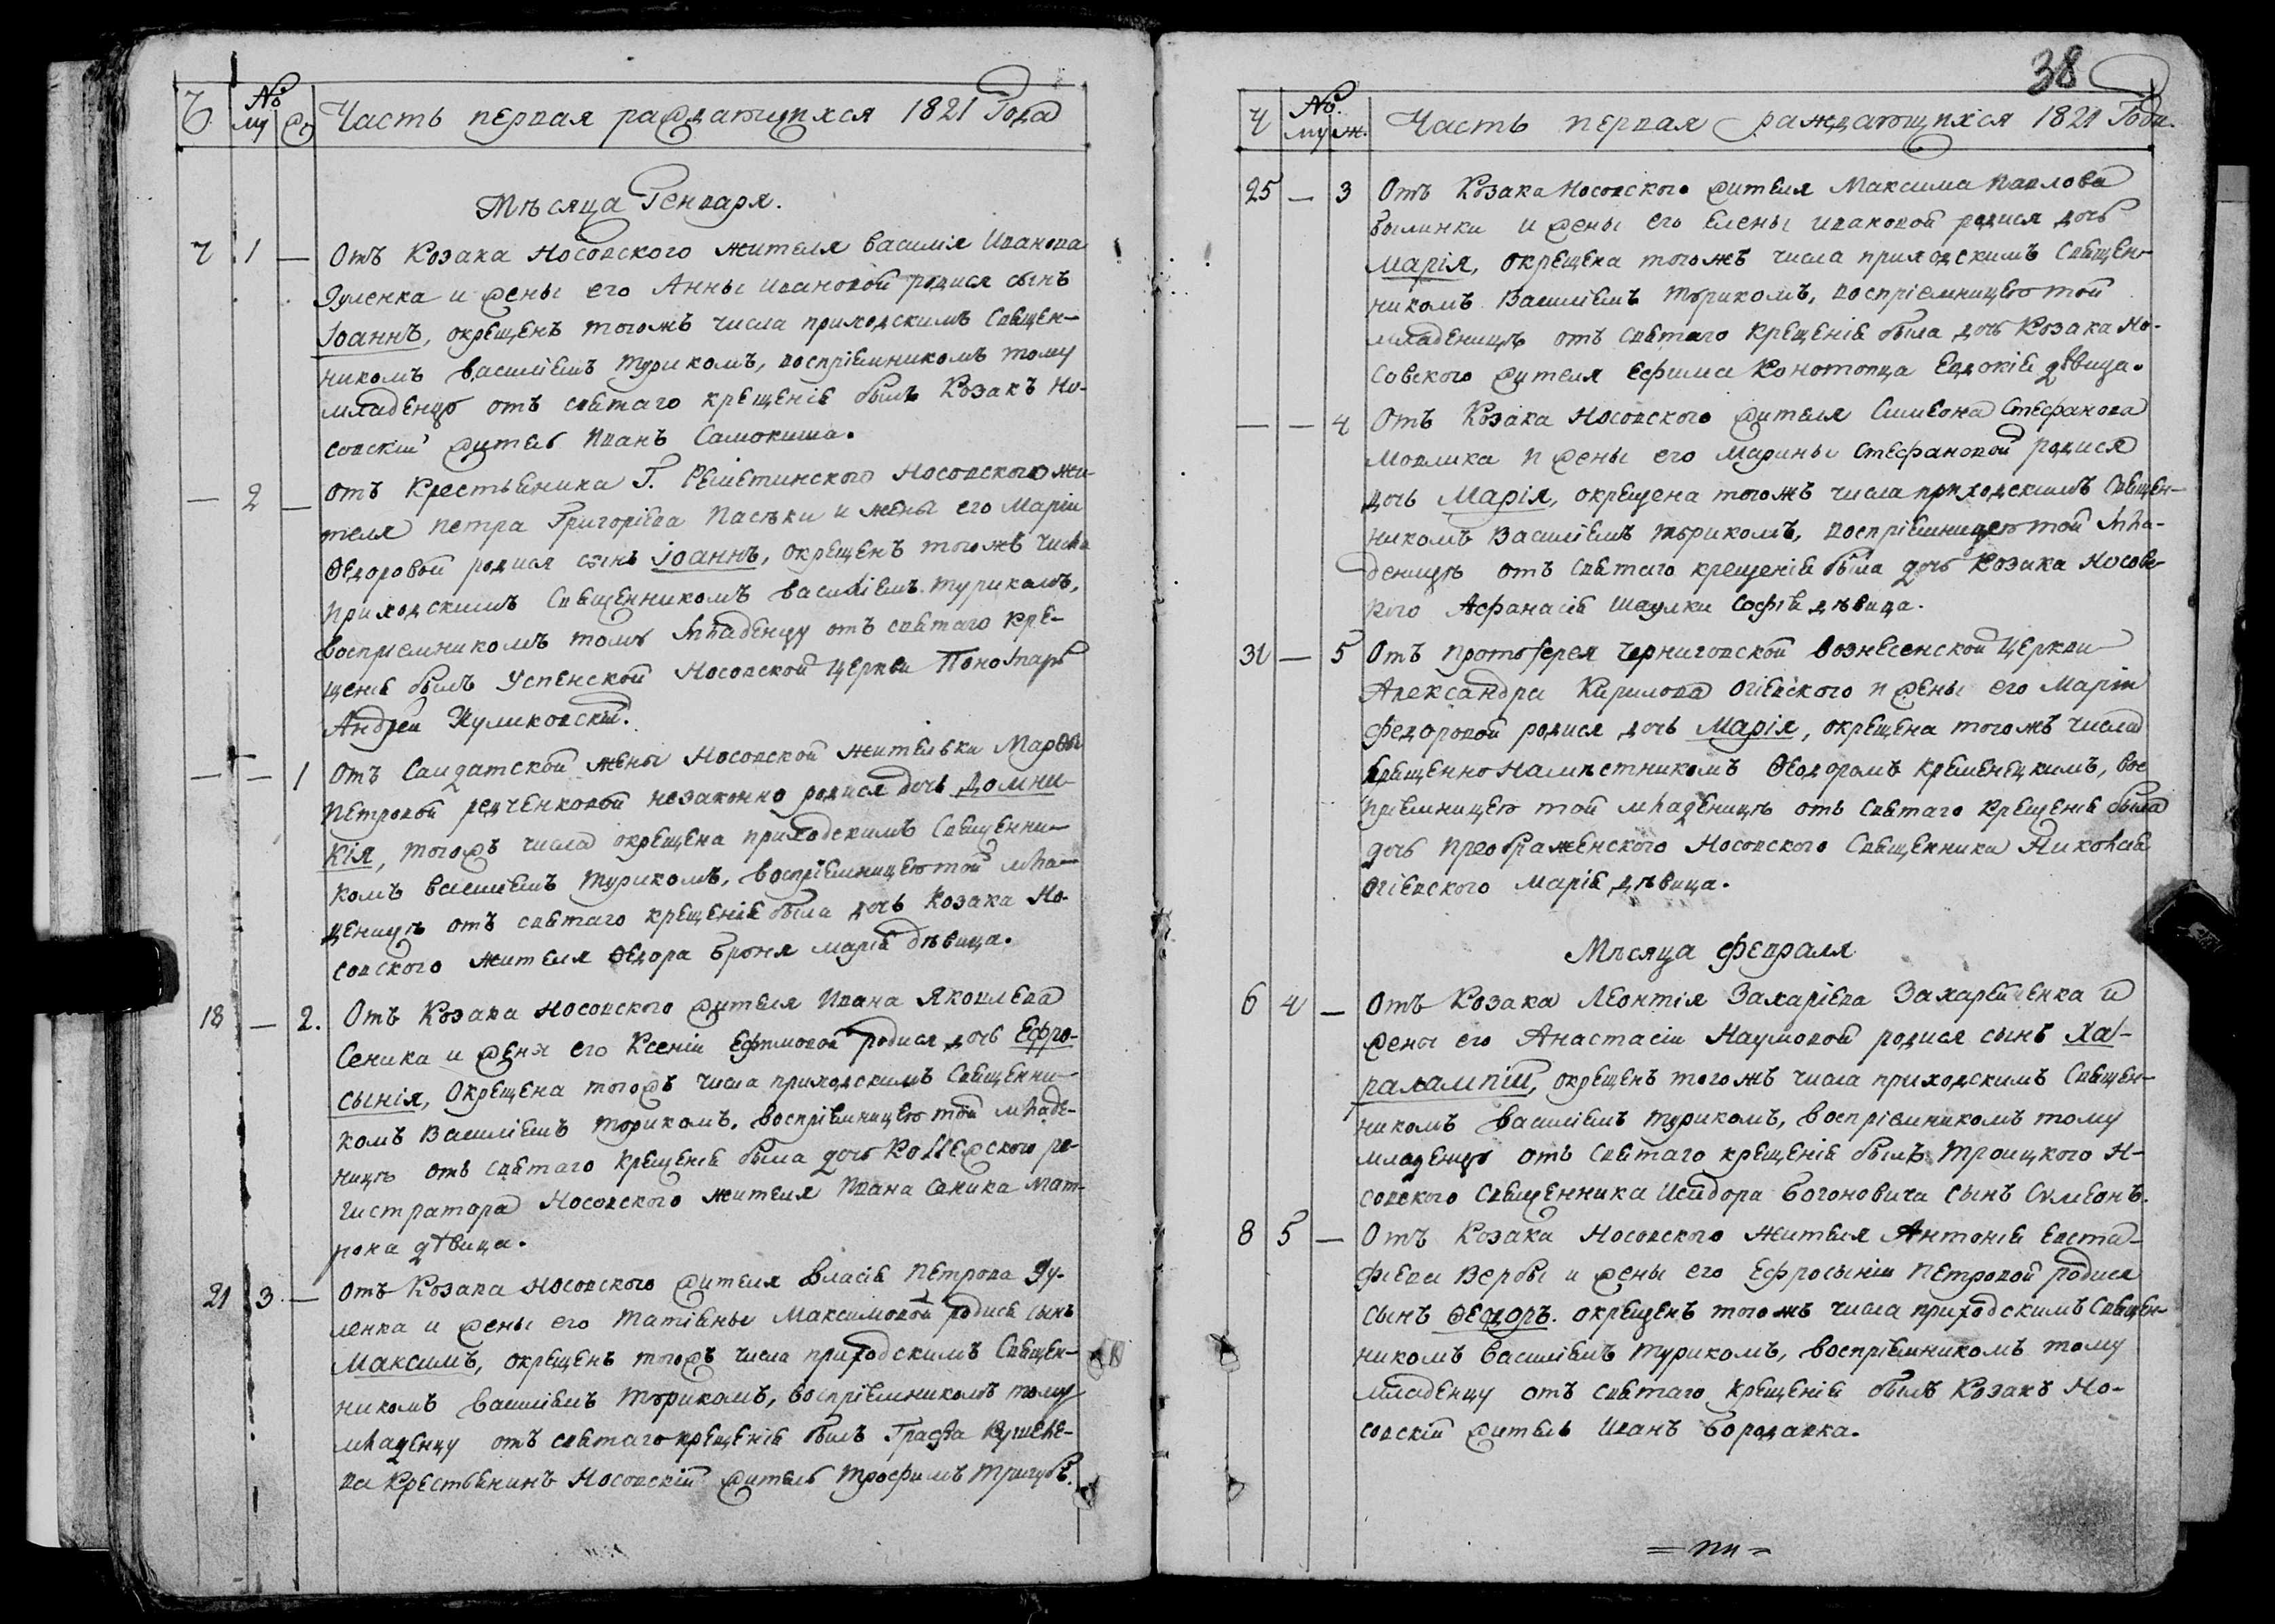 Ч № му ж Часть первая раждающихся 1821 Года
Мѣсяца Генваря.
7 1 — Отъ Козака Носовского жителя Василія Иванова
Зуленка и жены его Анны Ивановой родися сынъ
Іоаннъ, окрещенъ тогожъ числа приходскимъ Священ-
никомъ Василіемъ Туриком, воспріемникомъ тому
младенцу отъ святаго крещенія былъ Козакъ Но-
совскій житель Иванъ Самокиша.
— 2 — Отъ Крестьянина Г. Решетинского Носовского жи-
теля Петра Григоріева Пасѣки и жены его Маріи
Ѳедоровой родися сынъ Іоаннъ, окрещенъ тогожъ числа
приходскимъ Священникомъ Василіемъ Турикомъ,
воспріемникомъ тому младенцу отъ святаго кре-
щенія былъ Успенской Носовской церкви Пономарь
Андрей Куликовскій.
— — 1 Отъ Салдатской жены Носовской жительки Марѳы
Петровой Редченковой незаконно родися дочь Домни-
кія, тогожъ числа окрещена приходскимъ Священни-
комъ Василіемъ Турикомъ, воспріемницею той мла-
деницѣ отъ святаго крещенія была дочь Козака Но-
совского жителя Ѳедора Броня Марія дѣвица.
18 — 2. Отъ Козака Носовского жителя Ивана Яковлева
Сеника и жени его Ксеніи Ефимовой родися дочь Ефро-
сынія, окрещена тогожъ числа приходскимъ Священни-
комъ Василіемъ Турикомъ, воспріемницею той младе-
ницѣ отъ святаго крещенія была дочь Коллежского ре-
гистратора Носовского жителя Ивана Сеника Мат-
рона дѣвица.
21 3 — Отъ Козака Носовского жителя Власія Петрова Зу-
ленка и жены его Татіяны Максимовой родися сынъ
Максимъ, окрещенъ тогожъ числа приходскимъ Священ-
никомъ Василіемъ Турикомъ, воспріемникомъ тому
младенцу отъ святаго крещенія былъ Графа Кушеле-
ва Крестьянинъ Носовскій житель Трофимъ Тригубъ.
38
Ч № му ж. Часть первая раждающихся 1821 Года.
25 — 3 Отъ Козака Носовского жителя Максима Павлова
Былинки и жены его Елены Ивановой родися дочь
Марія, окрещена тогожъ числа приходскимъ Священ-
никомъ Василіемъ Турикомъ, воспріемницею той
младеницѣ отъ святаго крещенія была дочь Козака Но-
совского жителя Ефима Конотопца Евдокія дѣвица.
— — 4 Отъ Козака Носовского жителя Симеона Стефанова
Мовлика и жены его Марины Стефановой родися
дочь Марія, окрещена тогожъ числа приходскимъ Священ-
никомъ Василіемъ Турикомъ, воспріемницею той мла-
деницѣ отъ святаго крещенія была дочь Козака Носовс-
кого Афанасія Шаулки Софія дѣвица.
31 — 5 Отъ Протоіерея Черниговской Вознесенской Церкви
Александра Кирилова Огіевского и жены его Маріи
Федоровой родися дочь Марія, окрещена тогожъ числа
Священнонамѣстникомъ Ѳеодоромъ Кременецкимъ, вос-
пріемницею той младеницѣ отъ святаго крещенія была
дочь Преображенского Носовского Священника Николая
Огіевского Марія дѣвица.
Мѣсяца Февраля
6 4 — Отъ Козака Леонтія Захаріева Захарченка и
жены его Анастасіи Наумовой родися сынъ Ха-
ралампій, окрещенъ тогожъ числа приходскимъ Священ-
никомъ Василіемъ Турикомъ, воспріемникомъ тому
младенцу отъ святаго крещенія былъ Троицкого Н-
совского Священника Исидора Богоновича сынъ Симеонъ.
8 5 — Отъ Козака Носовского жителя Антонія Евста-
фіева Вербы и жены его Ефросыніи Петровой родися
сынъ Ѳеодоръ. окрещенъ тогожъ числа приходскимъ Священ-
никомъ Василіемъ Турикомъ, воспріемникомъ тому
младенцу отъ святаго крещенія былъ Козакъ Но-
совскій житель Иванъ Бородавка.